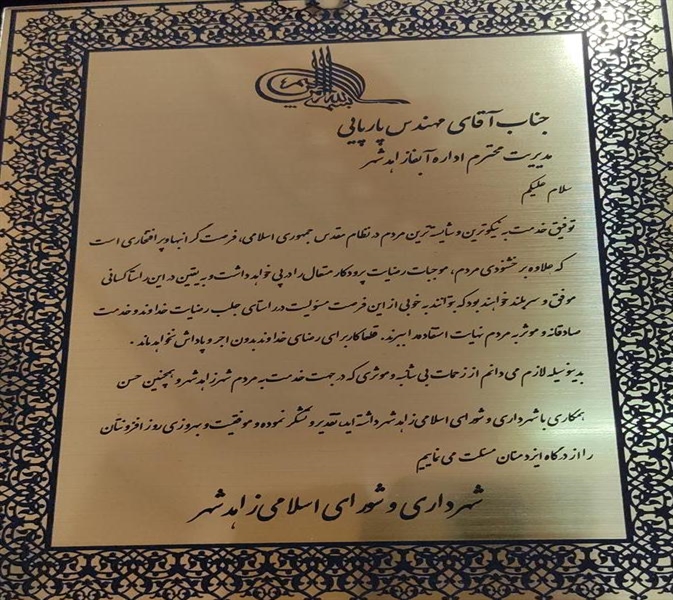 بسمه تعالی
جناب آقای مهندس پارپایی
مدیریت محترم اداره آبفا زاهدشهر
سلام علیکم
توفیق خدمت به نیکوترین و شایسته ترین مردم در نظام مقدس جمهوری اسلامی، فرصت گرانبها و پر افتخاری است
که علاوه بر خشنودی مردم، موجبات رضایت پروردگار متعال را در پی خواهد داشت و به یقین در این راستا کسانی
موفق و سربلند خواهند بود که بتوانند به خوبی از این فرصت مسئولیت در راستای جلب رضایت خداوند و خدمت
صادقانه و موثر به مردم نهایت استفاده را ببرند. قطعا کار برای رضای خداوند بدون اجر و پاداش نخواهد ماند.
بدینوسیله لازم می دانم از زحمات بی شائبه و موثری که در جهت خدمت به مردم شهر زاهدشهر و همچنین حسن
همکاری با شهرداری و شورای اسلامی زاهدشهر داشته اید، تقدیر و تشکر نموده و موفقیت و بهروزی روز افزونتان
را از درگاه ایزد منان مسئلت می نماییم
شهرداری و شورای اسلامی زاهدشهر